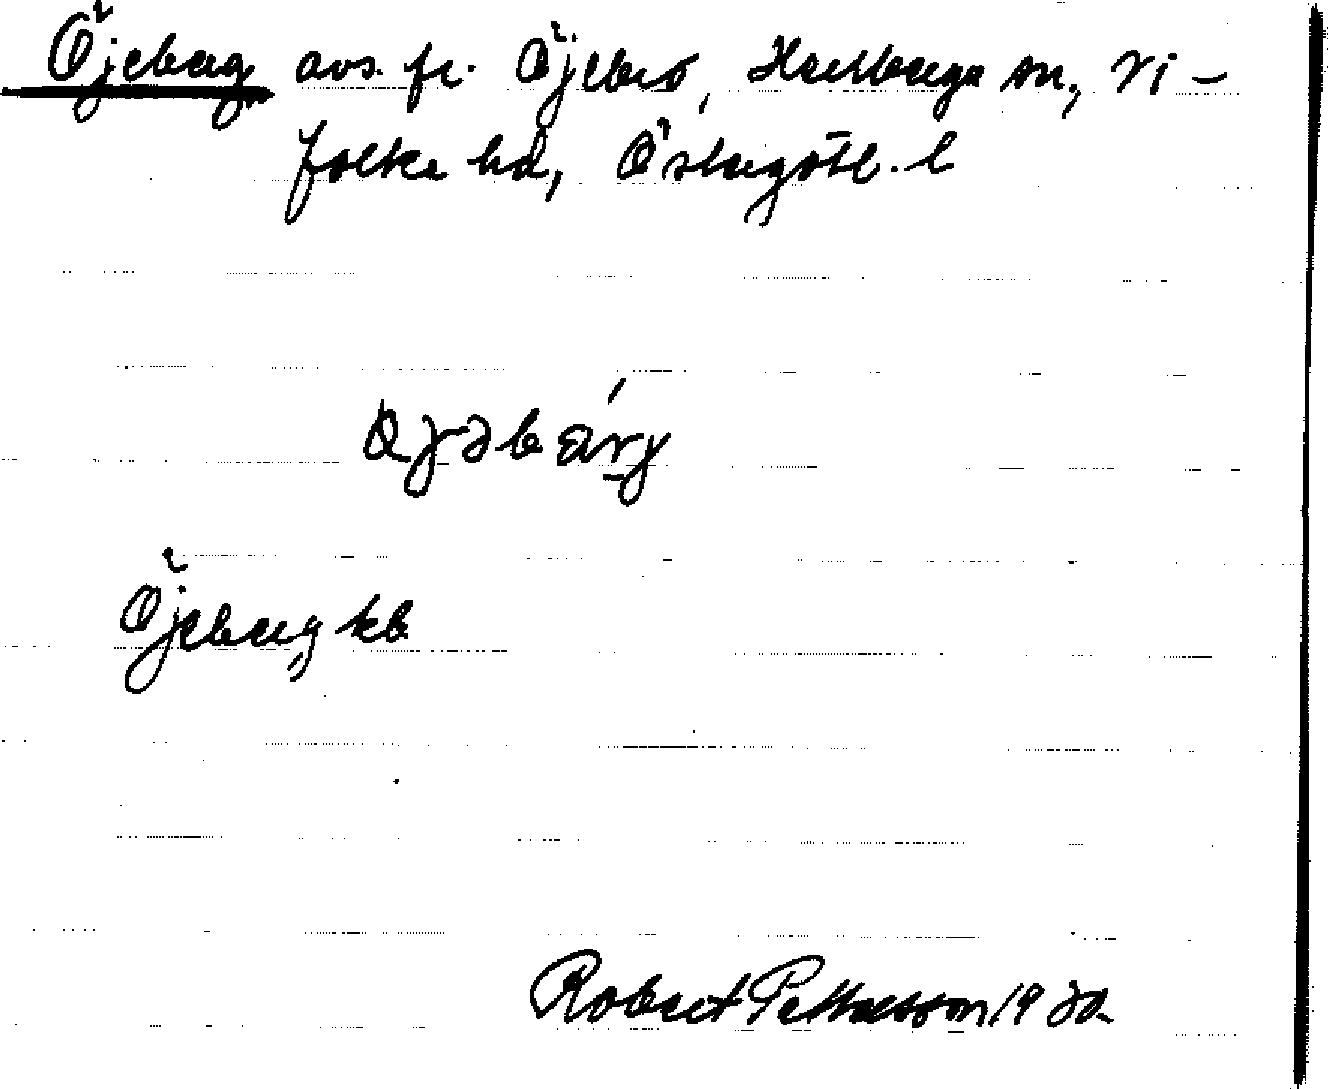 Öjeberg avs. fr. Öjebro, Harstorps sn, Vi-
folka hd, Östergötl. l
Öjeberg kb
Robert Pettersson 19